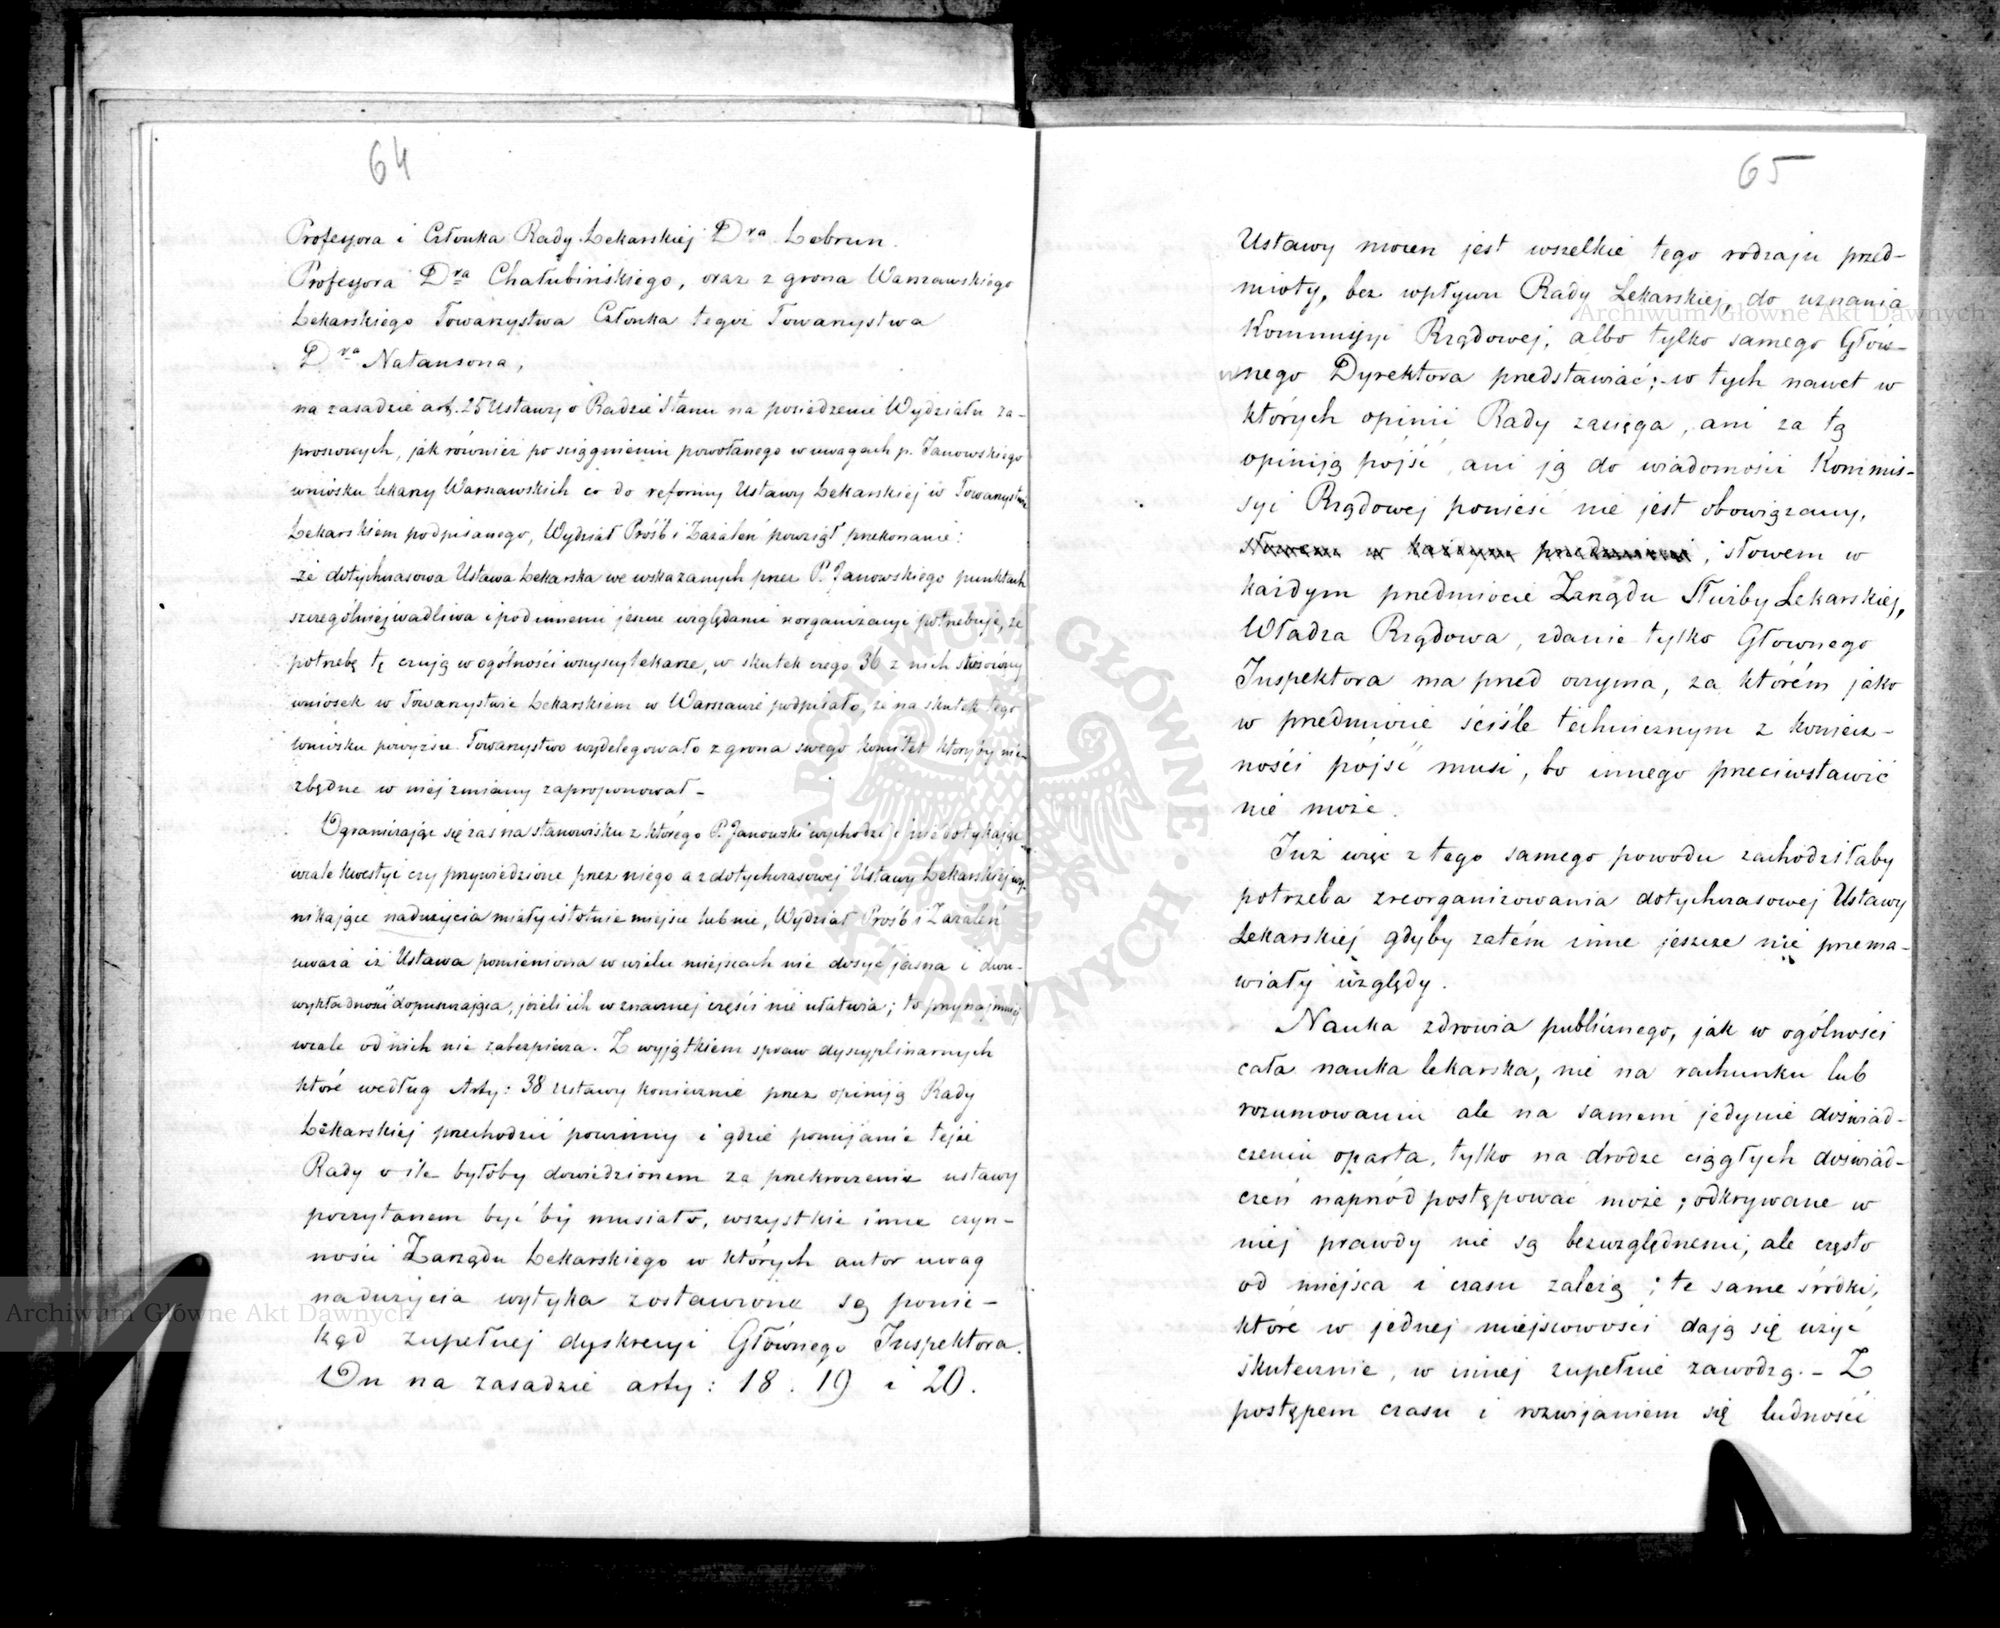 64
Professora i Członka Rady Lekarskiej Dra Lebrun.
Professora Dra Chałubińskiego, oraz z grona Warszawskiego
Lekarskiego Towarzystwa Członka tegoż Towarzystwa
Dra Natansona,
na zasadzie art. 25 Ustawy o Radzie Stanu na posiedzenie Wydziału za-
proszonych, jak również po ściągnieniu powołanego w uwagach p. Janowskiego
wniosku lekarzy Warszawskich co do reformy Ustawy Lekarskiej w Towarzystwie
Lekarskiem podpisanego, Wydział Prośb i Zażaleń powziął przekonanie:
że dotychczasowa Ustawa Lekarska we wskazanych przez P. Janowskiego punktach
szczególniej wadliwa i pod innemi jeszcze względami reorganizacyi potrzebuje, że
potrzebę tę czują w ogólności wszyscy lekarze, w skutek czego 36 z nich stosowny
wniosek w Towarzystwie Lekarskiem w Warszawie podpisało, że na skutek tego
wniosku powyższe Towarzystwo wydelegowało z grona swego komitet któryby nie-
zbędne w niej zmiany zaproponował –
Ograniczając się zaś na stanowisku z którego P. Janowski wychodzi i nie dotykając
wcale kwestyi czy przywiedzione przez niego a z dotychczasowej Ustawy Lekarskiej wy-
nikające nadużycia miały istotnie miejsce lub nie, Wydział Prośb i Zażaleń
uważa iż Ustawa pomieniona w wielu miejscach nie dosyć jasna i dwu-
wykładność dopuszczająca, jeżeli ich w znacznej części nie ułatwia; to przynajmniej
wcale od nich nie zabezpiecza. Z wyjątkiem spraw dyscyplinarnych
które według Arty: 38 Ustawy koniecznie przez opiniją Rady
Lekarskiej przechodzić powinny i gdzie pomijanie tejże
Rady o ile byłoby dowiedzionem za przekroczenie ustawy
poczytanem być by musiało, wszystkie inne czyn-
ności Zarządu Lekarskiego w których autor uwag
nadużycia wytyka zostawione są ponie-
kąd zupełnej dyskrecyi Głównego Inspektora.
On na zasadzie arty: 18. 19 i 20.
65
Ustawy mocen jest wszelkie tego rodzaju przed-
mioty, bez wpływu Rady Lekarskiej, do uznania
Kommissyi Rządowej, albo tylko samego Głów-
nego Dyrektora przedstawiać; w tych nawet w
których opinii Rady zasięga, ani za tą
opiniją pójść, ani ją do wiadomości Kommis-
syi Rządowej ponieść nie jest obowiązany,
słowem w każdym przedmiocie, słowem w
każdym przedmiocie Zarządu Służby Lekarskiej,
Władza Rządowa, zdanie tylko Głownego
Inspektora ma przed oczyma, za którém jako
w przedmiocie ściśle technicznym z koniecz-
ności pójść musi, bo innego przeciwstawić
nie może.
Już więc z tego samego powodu zachodziłaby
potrzeba zreorganizowania dotychczasowej Ustawy
Lekarskiej gdyby zatém inne jeszcze nie przema-
wiały względy.
Nauka zdrowia publicznego, jak w ogólności
cała nauka lekarska, nie na rachunku lub
rozumowaniu ale na samem jedynie doświad-
czeniu oparta, tylko na drodze ciągłych doświad-
czeń naprzód postępować może; odkrywane w
niej prawdy nie są bezwzględnemi, ale często
od miejsca i czasu zależą; te same środki,
które w jednej miejscowości dają się użyć
skutecznie, w innej zupełnie zawodzą. – Z
postępem czasu i rozwijaniem się ludności
Archiwum Główne Akt Dawnych
Archiwum Główne Akt Dawnych
ARCHIWUM GŁÓWNE AKT DAWNYCH